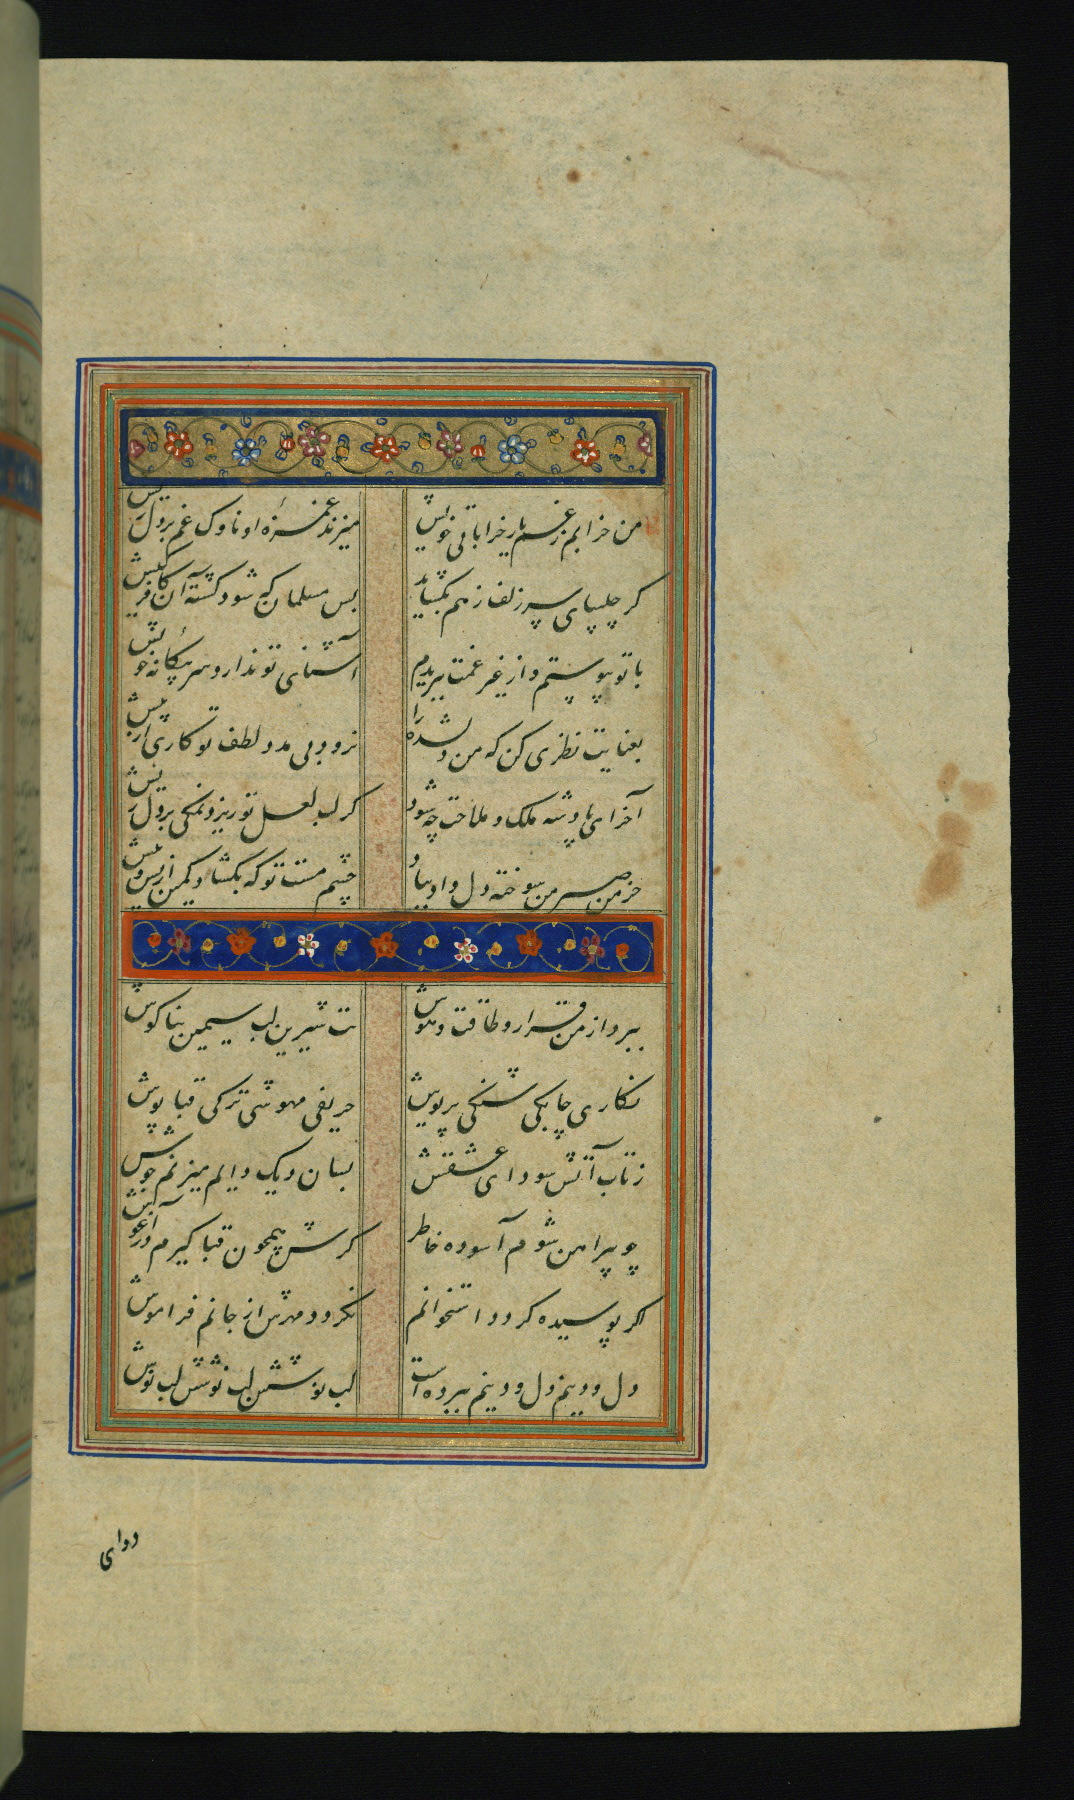 من خرابم ز غم یار خراباتی خویش
میزند غمزهٔ او ناوک غم بر دل ریش
کر چلیپای سر زلف ز هم بکشاید
بس مسلمان که شود کشتهٔ آن کافر کیش
با تو پیوستم و از غیر غمت ببریدم
آشنای تو ندارد سر بیکانه و خویش
بعنایت نظری کن که من دلشده را
نرود بی مدد لطف تو کاری از پیش
آخر ای پادشه ملک و ملاحت چه شود
کر لب لعل تو ریزد نمکی بر دل ریش
خرمن صبر من سوخته دل داد بباد
چشم مست تو که بکشاد کمین از پس و پیش
ببرد از من قرار و طاقت و هوش
بت شیرین لب سیمین بناکوش
نکاری چابکی شنکی پریوش
حریفی مهوشی ترکی قباپوش
ز تاب آتش سودای عشقش
بسان دیک دایم میزنم جوش
چو پیراهن شوم آسوده خاطر
کرش همچون قبا کیرم در آغوش
اکر پوسیده کردد استخوانم
نکردد مهرش از جانم فراموش
دل و دینم دل و دینم ببرده است
لب نوشش لب نوشش لب نوش
دوای